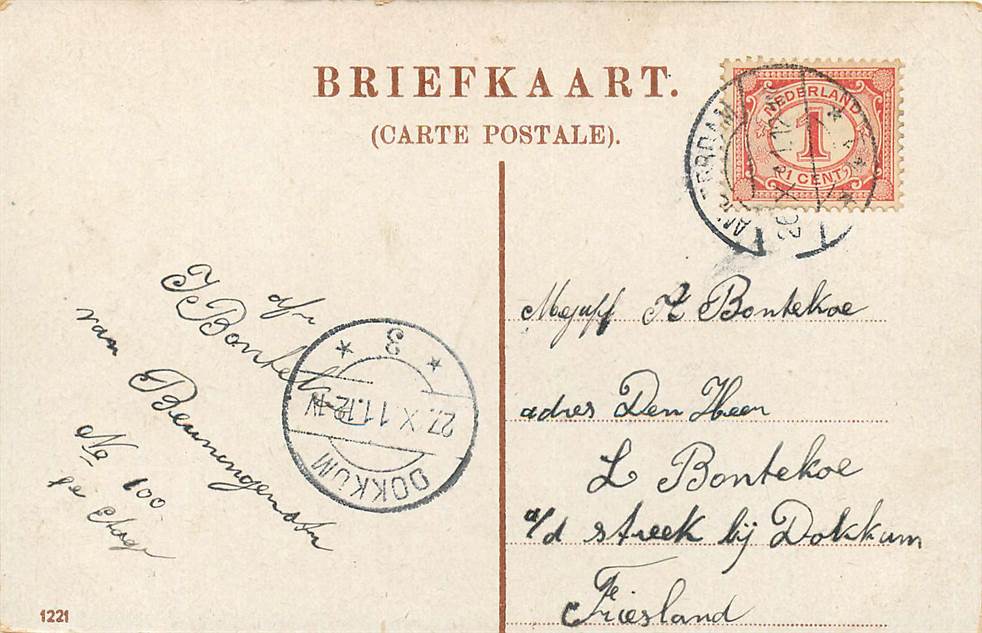 BRIEFKAART.
(CARTE POSTALE).
NEDERLAND
1
1 CENT
AMSTERDAM
afz
J Bontekoe
van Beuningenstr
No 100
etage
3
27.X.11.12-1V
DOKKUM
Mejuff Bontekoe
adres Den Heer
L Bontekoe
a/d streek bij Dokkum
Friesland
1221